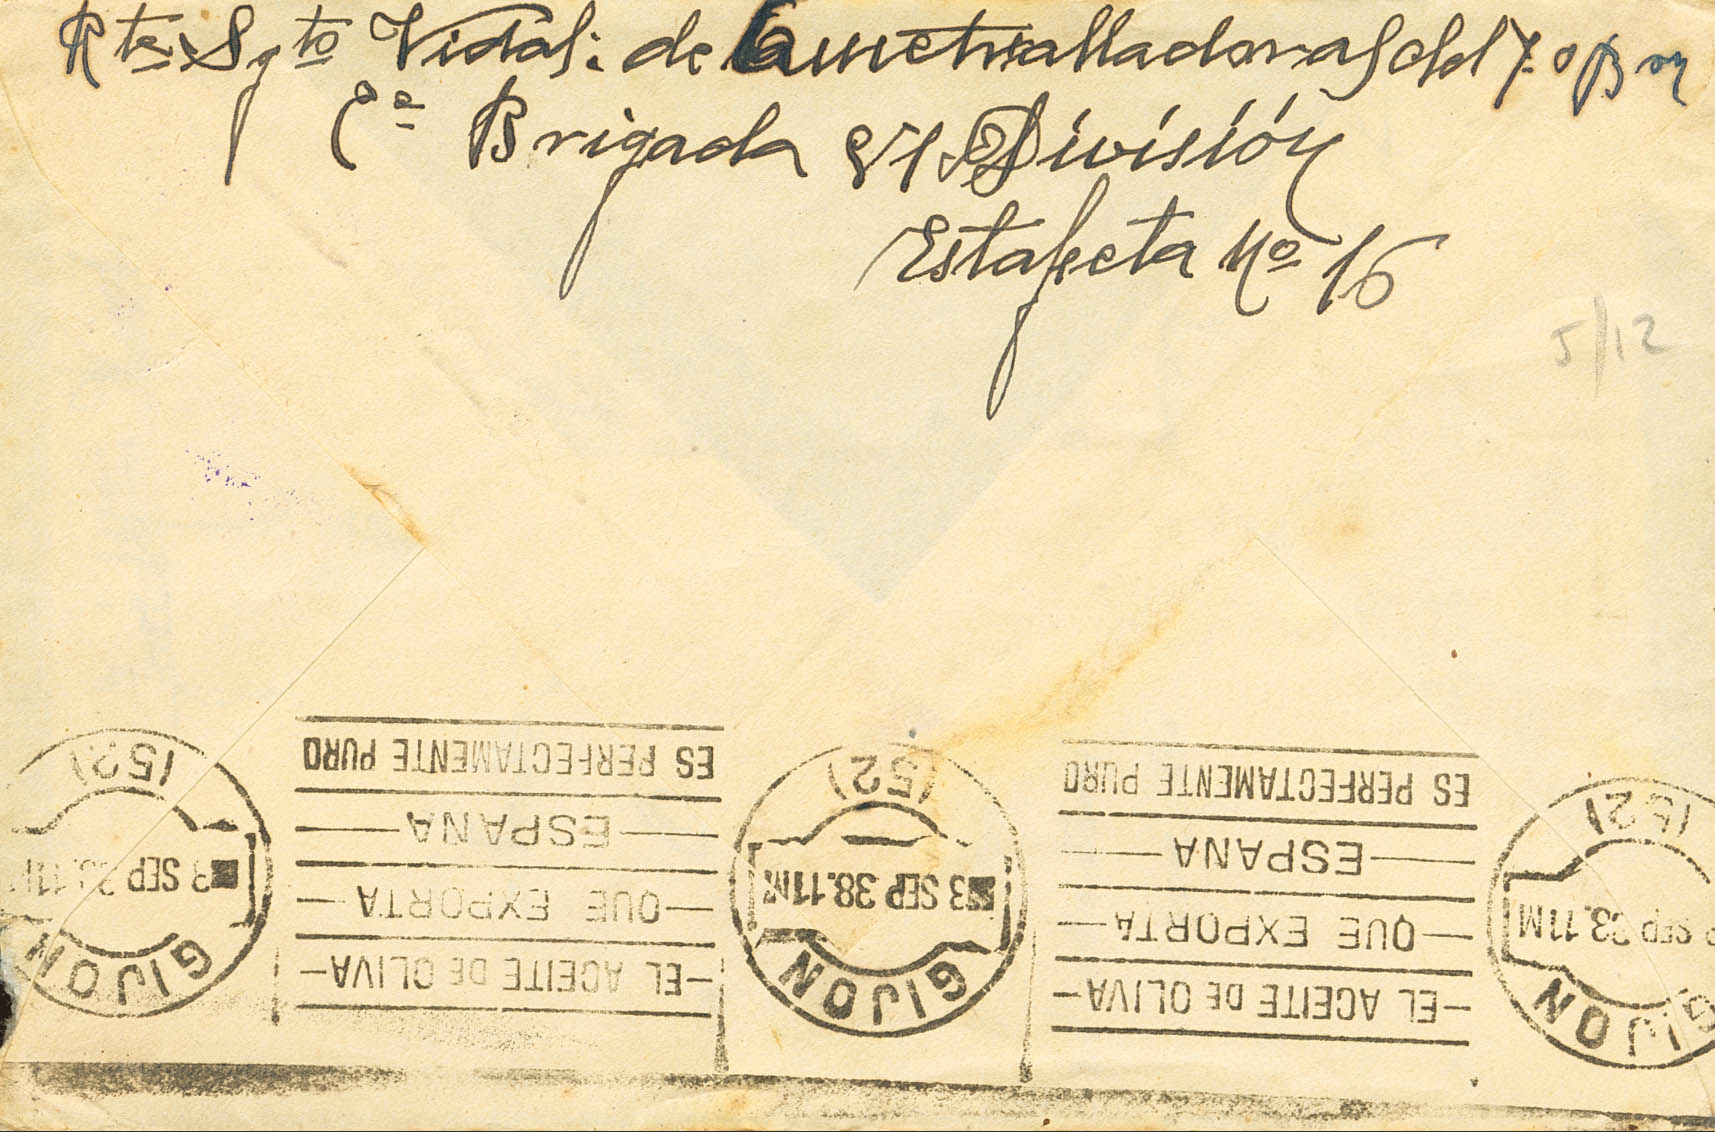 Rte. Sgto Vidal: de ametralladoras del 7.º Bon
2ª Brigada 81 División
Estafeta Nº 16
5/12
(52)
ES PERFECTAMENTE PURO
ESPAÑA
QUE EXPORTA
EL ACEITE DE OLIVA
3 SEP 38.11M
GIJON
(52)
3 SEP 38.11M
GIJON
ES PERFECTAMENTE PURO
ESPAÑA
QUE EXPORTA
EL ACEITE DE OLIVA
(52)
SEP 38.11M
GIJON